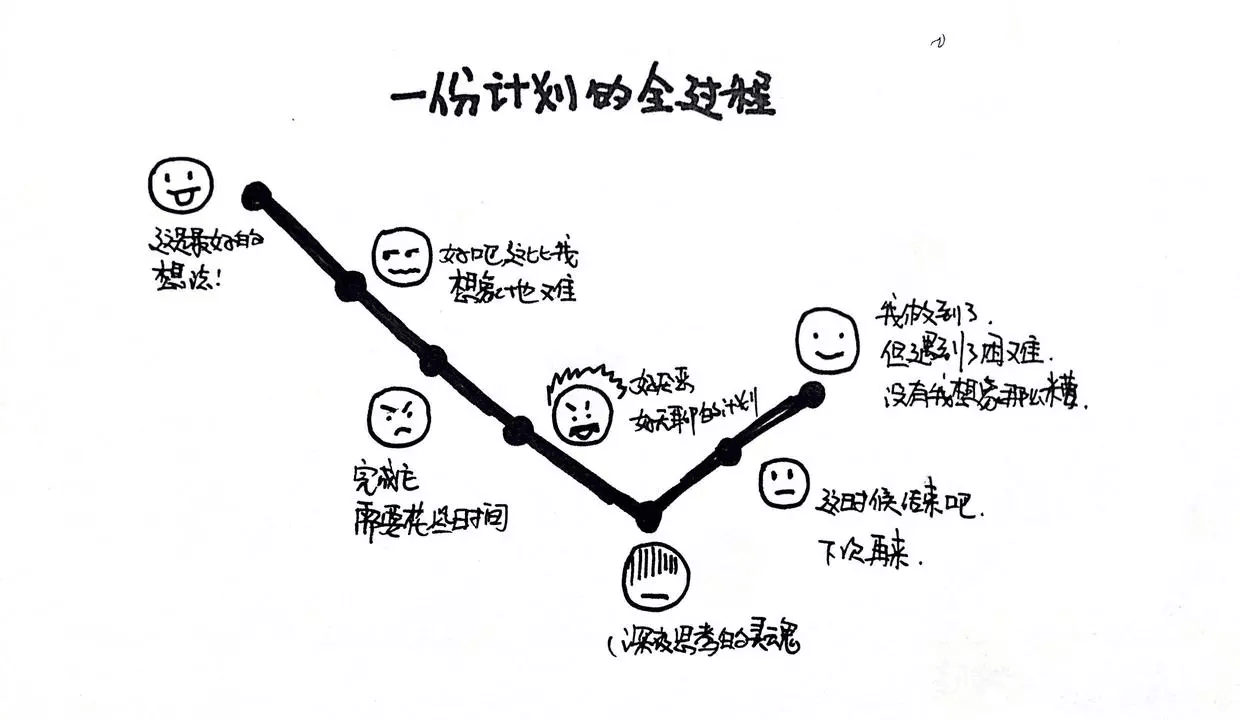 一份计划的全过程
这是最好的
想法!
好吧这比我
想象地难
完成它
需要花些时间
好无聊的计划
(深夜思考的灵魂
这时候结束吧.
下次再来.
我做到了.
但遇到了困难.
没有我想象那么糟.